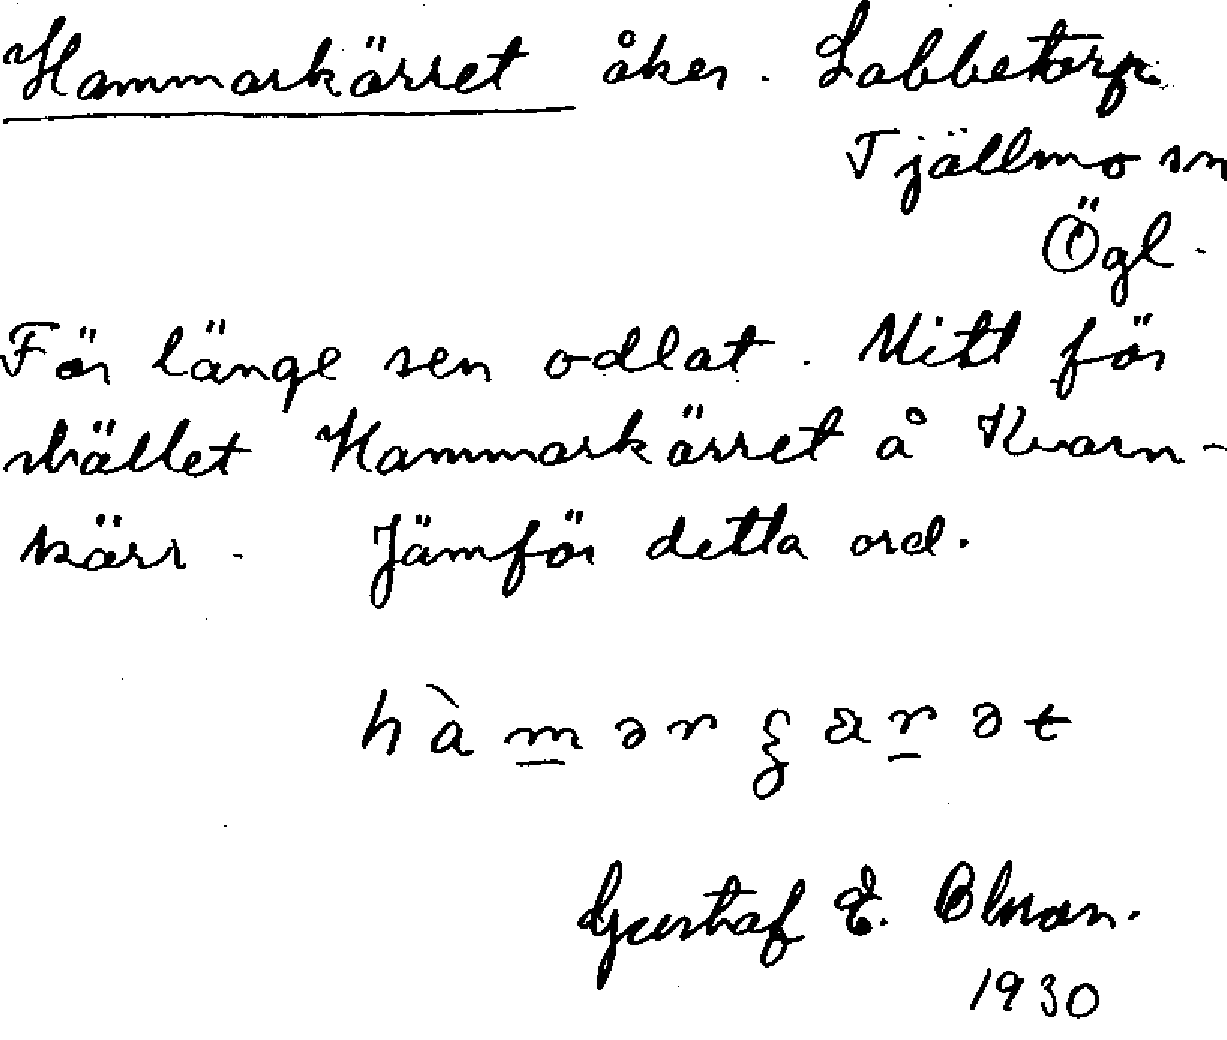 Hammarkärret åker. Labbetorp
Tjällmo sn
Ögl.
För länge sen odlat. Mitt för
stället Hammarkärret å Kvarn-
kärr. Jämför detta ord.
Gustaf E.
1930